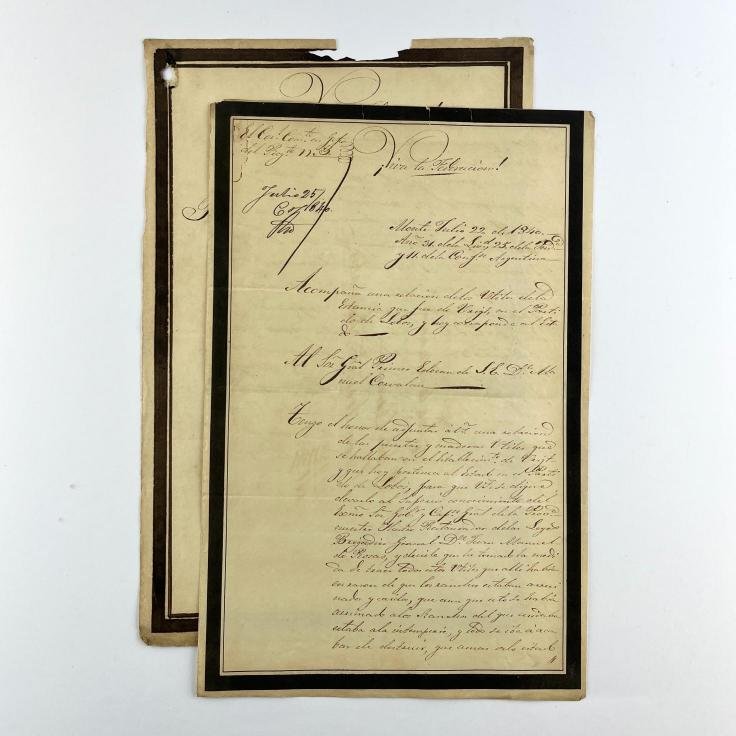 El Cor.l Com.te en Jefe
del Reg.to N.º 3
Julio 25/
1840.
¡Viva la Federacion!
Monte Julio 22 de 1840.
Año 31 de la Lib.d 25 de la
y 11 de la Conf.on Argentina
Acompaña una relacion de los Utiles de la
Estancia que fue de Veigt, en el Parti-
do de Lobos, y hoy corresponde al Esta-
do
Al Sor Gral Primer Edecan de S. E. D.n Ma-
nuel Corvalan
Tengo el honor de adjuntar á V.S. una relacion
de las puertas y maderas Utiles que
se hallaban en el Establecim.to de Veigt
y que hoy pertenece al Estado en el Parti-
do de Lobos, para que V.S. se digne
elevarlo al Supremo conocimiento del
Exmo Sor Gob.r y Cap.n Gral de la Prov.a
nuestro Ilustre Restaurador de las Leyes
Brigadier General D.n Juan Manuel
de Rosas, y decirle que he tomado la medi-
da de traer todos estos Utiles que alli habia
en razon de que los ranchos estaban arrui-
nados y caidos, que aun que esto se habia
arrimado a los Ranchos del que cuidaba
estaba a la intemperie, y todo se iba á aca-
bar de destruir, que